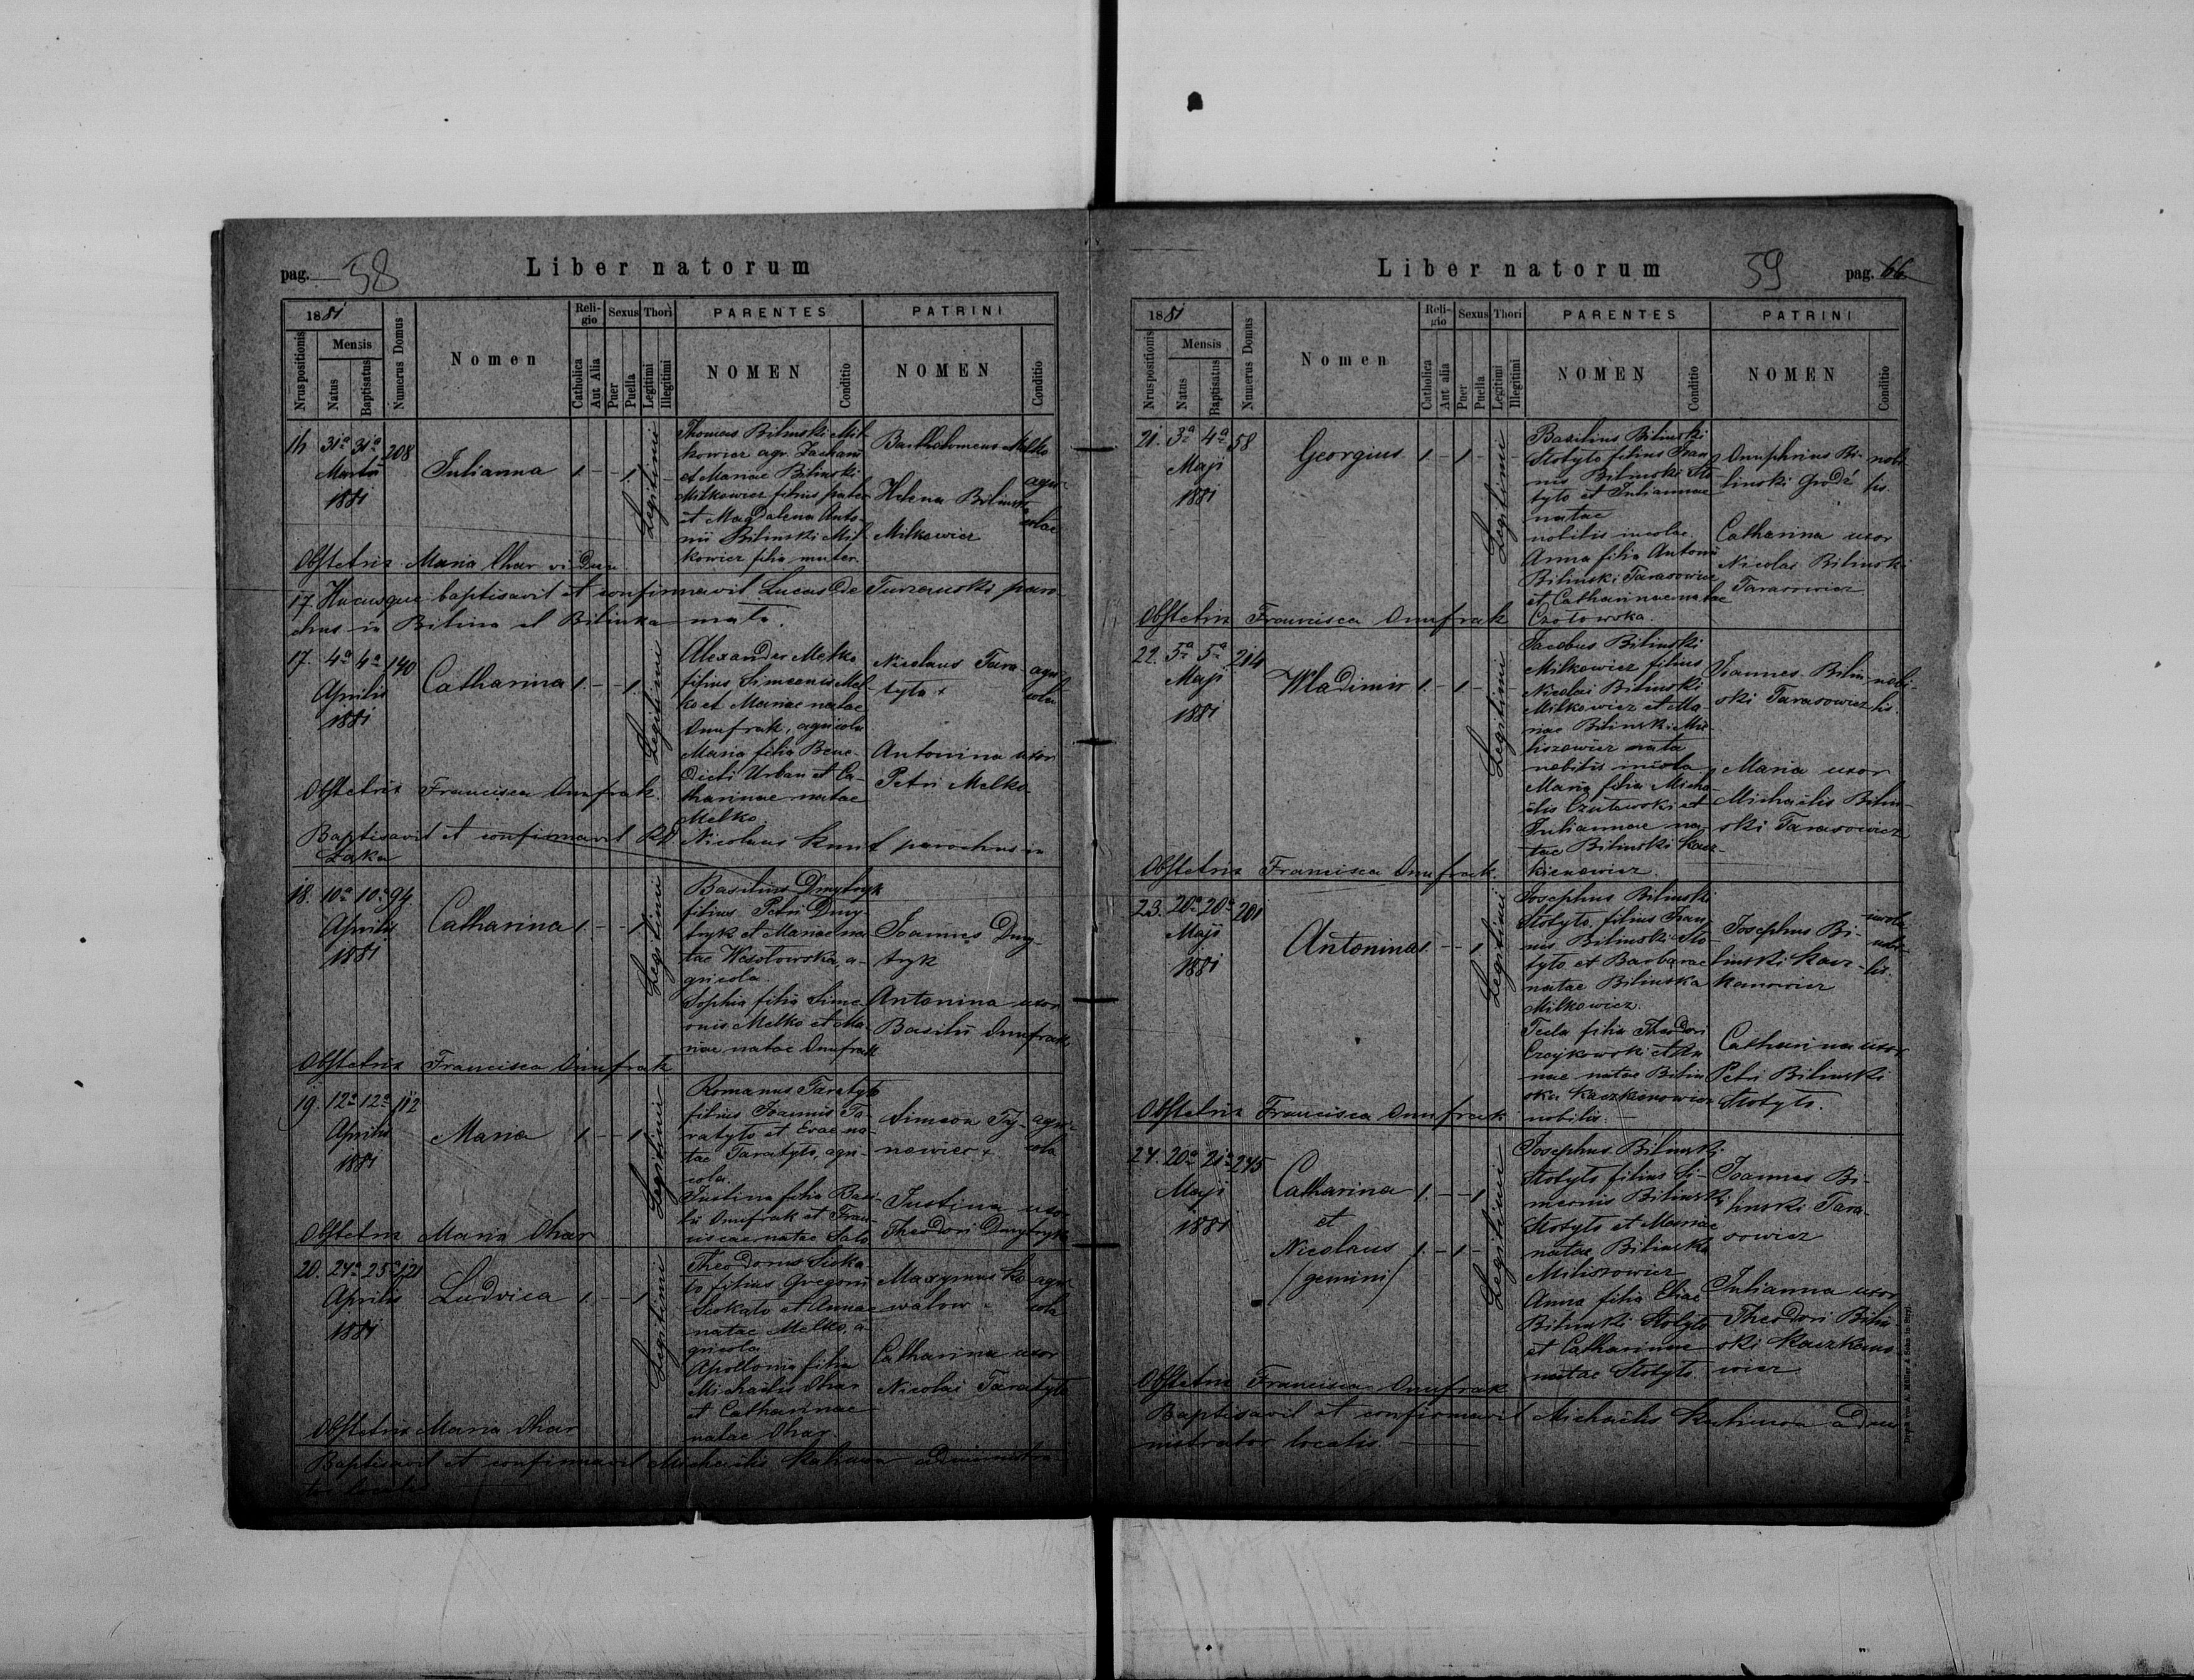 pag. 58
Liber natorum
1881
Reli-
gio
Sexus
Thori
PARENTES
PATRINI
Nrus positionis
Mensis
Natus
Baptisatus
Numerus Domus
Nomen
Catholica
Aut Alia
Puer
Puella
Legitimi
Illegitimi
NOMEN
Conditio
NOMEN
Conditio
16 31a 31a 208
Martii
1881
Julianna
1 - - 1
Legitimi
Thomas Bilinski Mil-
kowicz agr. Zachari
et Mariae Bilinski
Milkowicz filius pater
et Magdalena Anto-
nii Bilinski Mil-
kowicz filia mater.
Bartholomeus Melko
Helena Bilinska
Milkowicz
agri-
colae
Obstetrix Maria Char vidua
17 Hucusque baptisavit et confirmavit Lucas De Turzanski paro-
chus in Bilina et Bilinka mała.
17. 4a 4a 140
Aprilis
1881
Catharina
1 - - 1
Legitimi
Alexander Melko
filius Simeonis Mel-
ko et Mariae natae
Onufrak, agricola
Maria filia Bene-
dicti Urban et Ca-
tharinae natae
Melko.
Nicolaus Tara-
tyło +
Antonina uxor
Petri Melko
agri-
cola
Obstetrix Francisca Onufrak.
Baptisavit et confirmavit RD Nicolaus parochus in
Łąka
18. 10a 10a 94
Aprilis
1881
Catharina
1 - - 1
Legitimi
Basilius Dmytryk
filius Petri Dmy-
tryk et Mariae na-
tae Wesołowska, a-
gricola.
Sophia filia Sime-
onis Melko et Ma-
riae natae Onufrak
Joannes Dmy-
tryk
Antonina uxor
Basilii Onufrak
Obstetrix Francisca Onufrak
19. 12a 12a 112
Aprilis
1881
Maria
1 - - 1
Legitimi
Romanus Taratyło
filius Joannis Ta-
ratyło et Evae na-
tae Taratyło, agri-
cola.
Justina filia Basi-
lii Onufrak et Fran-
ciscae natae Sało
Simeon Ty-
nowicz +
Justina uxor
Theodori Dmytryk
agri-
cola
Obstetrix Maria Char
20. 24a 25a 121
Aprilis
1881
Ludvica
1 - - 1
Legitimi
Theodorus
filius Gregorii
et Annae
natae Melko, a-
gricola
Apollonia filia
Michaelis Char
et Catharinae
natae Char
Maxymus Ko-
walow
Catharina uxor
Nicolai Taratyło
agri-
cola
Obstetrix Maria Char
Baptisavit et confirmavit Michaëlis administra-
tor localis
Liber natorum
59
pag. 66
1881
Reli-
gio
Sexus
Thori
PARENTES
PATRINI
Nrus positionis
Mensis
Natus
Baptisatus
Numerus Domus
Nomen
Catholica
Aut alia
Puer
Puella
Legitimi
Illegitimi
NOMEN
Conditio
NOMEN
Conditio
21. 3a 4a 58
Maji
1881
Georgius
1 - 1 -
Legitimi
Basilius Bilinski
Stotyło filius Joan-
nis Bilinski Sto-
tyło et Juliannae
natae
nobilis incola.
Anna filia Antonii
Bilinski Tarasowicz
et Catharinae natae
Czołowska.
Onuphrius Bi-
linski Gródź
Catharina uxor
Nicolai Bilinski
Tarasowicz.
nobi-
lis.
Obstetrix Francisca Onufrak
22. 5a 5a 214
Maji
1881
Wladimir
1 - 1 -
Legitimi
Jacobus Bilinski
Milkowicz filius
Nicolai Bilinski
Milkowicz et Ma-
riae Bilinski Mi-
liszowicz nata
nobilis incola
Maria filia Micha-
ëlis et
Juliannae na-
tae Bilinski Kacz-
kienowicz.
Joannes Bilin-
ski Tarasowicz
Maria uxor
Michaëlis Bilin-
ski Tarasowicz
nobi-
lis.
Obstetrix Francisca Onufrak.
23. 20a 20a 201
Maji
1881
Antonina
1 - - 1
Legitimi
Josephus Bilinski
Stotyło, filius Joan-
nis Bilinski Sto-
tyło et Barbarae
natae Bilinska
Milkowicz.
Tecla filia Theodori
Czajkowski et An-
nae natae Bilin-
ska Kaczkanowicz
nobilis.
Josephus Bi-
linski Kacz-
kanowicz
Catharina uxor
Petri Bilinski
Stotyło.
incola
nobi-
lis.
Obstetrix Francisca Onufrak
24. 20a 21a 245
Maji
1881
Catharina
et
Nicolaus
/gemini/
1 - - 1
1 - 1 -
Legitimi
Josephus Bilinski
Stotyło filius Si-
meonis Bilinski
Stotyło et Mariae
natae Bilinska
Miliszowicz
Anna filia Eliae
Bilinski Stotyło
et Catharinae
natae Stotyło.
Joannes Bi-
linski Tara-
sowicz
Julianna uxor
Theodori Bilin-
ski Kaczkano-
wicz
Obstetrix Francisca Onufrak
Baptisavit et confirmavit Michaëlis admi-
nistrator localis
Druck von A. Müller & Sohn in Stryj.